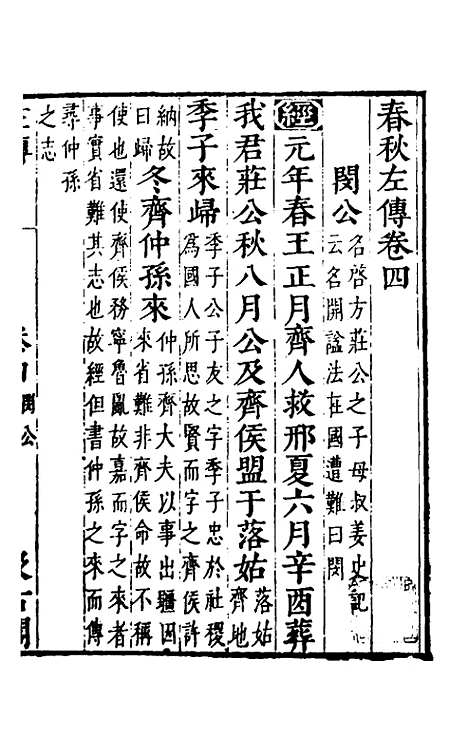 春秋左傳卷四
閔公 名啓方莊公之子母叔姜史記
云名開諡法在國遭難曰閔
經元年春王正月齊人救邢夏六月辛酉葬
我君莊公秋八月公及齊侯盟于落姑 落姑
齊地
季子來歸 季子公子友之字季子忠於社稷
爲國人所思故賢而字之齊侯許
納故
曰歸 冬齊仲孫來 仲孫齊大夫以事出疆因
來省難非齊侯命故不稱
使也還使齊侯務寧魯亂故嘉而字之來者
事實省難其志也故經但書仲孫之來而傳
尋仲孫
之志
左傳
卷四 閔公